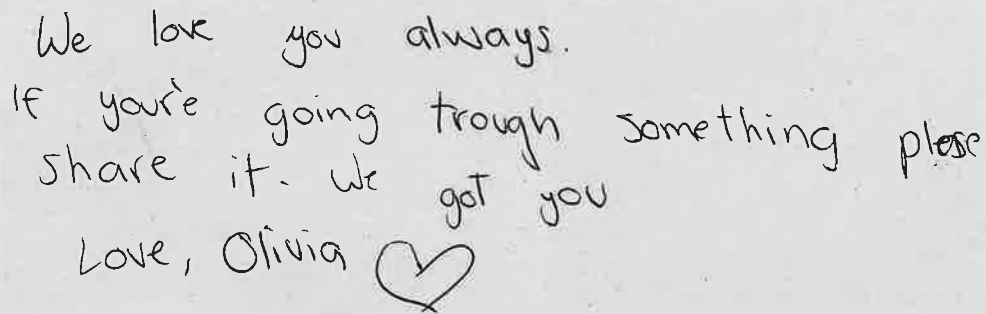 We love you always.
If your'e going trough something plese
share it. We got you
Love, Olivia